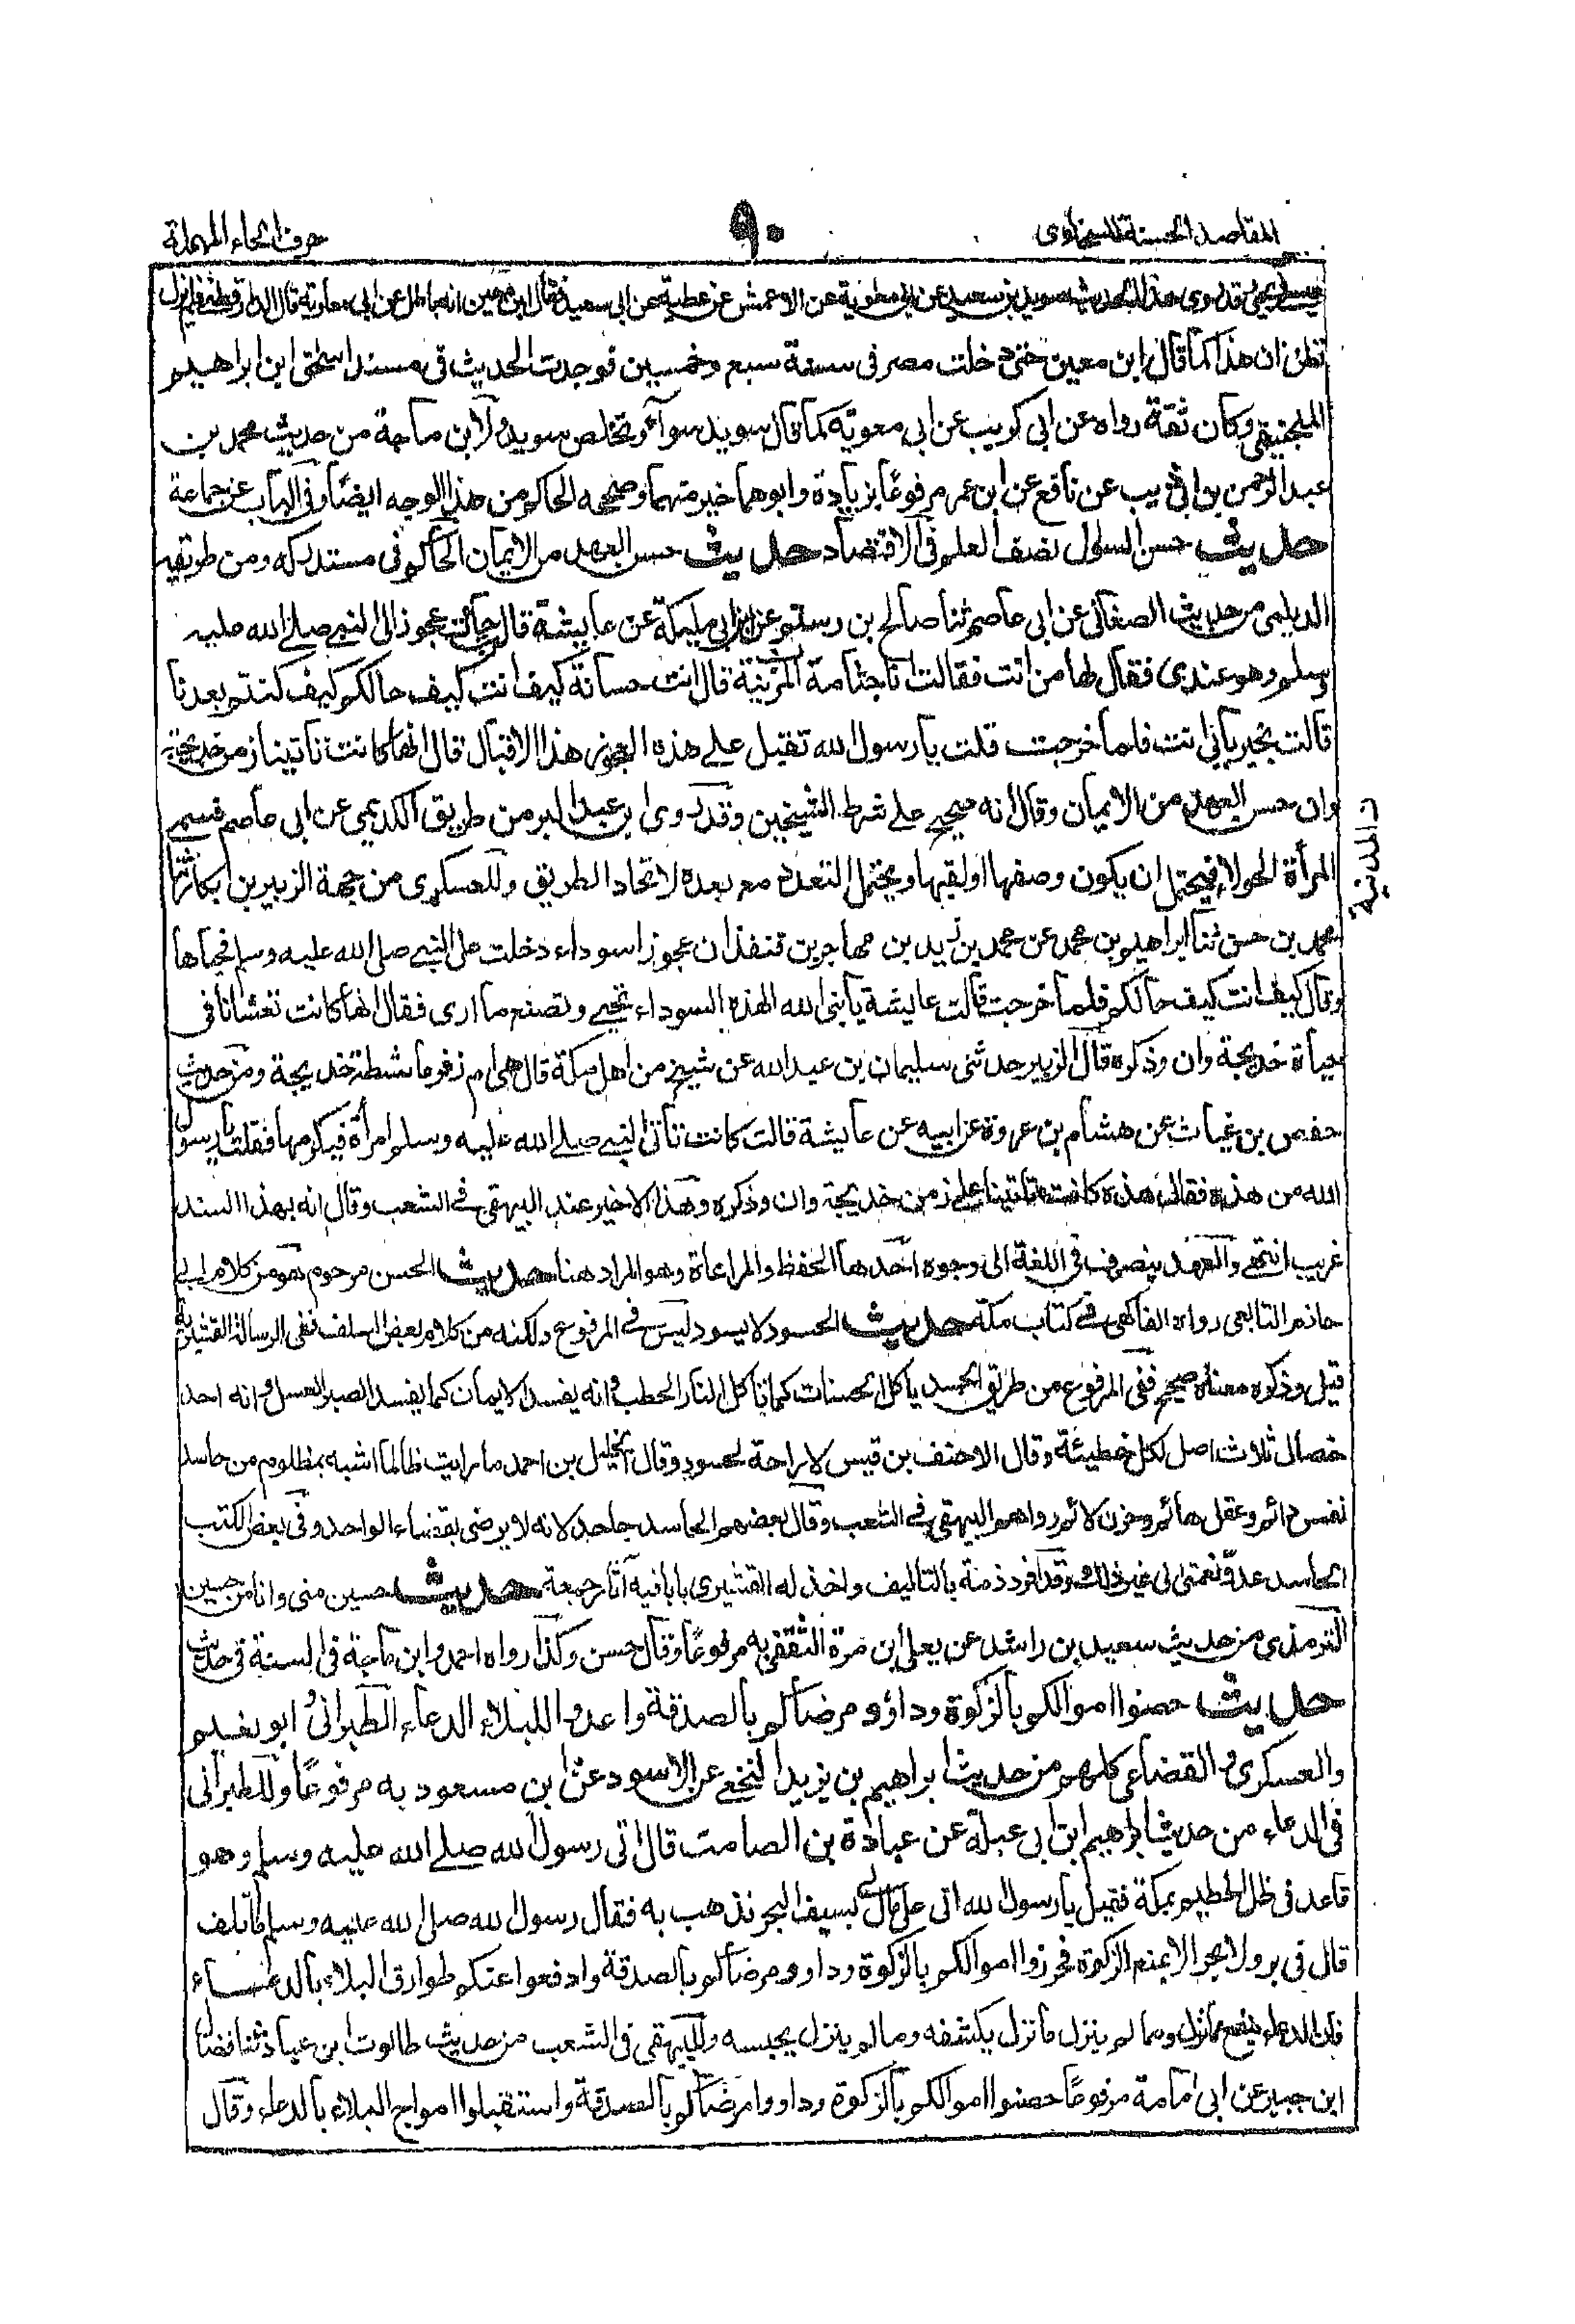 المقاصد الحسنة للسخاوى
٩٠
حرف الحاء المهملة
قد روى هذا الحديث سويد بن سعيد عن ابى معوية عن الاعمش عن عطية عن ابى سعيد فقال ابن معين انه باطل عن ابى معاوية قال الدارقطنى فلم نزل
نظن ان هذا كما قال ابن معين حتى دخلت مصر فى سنة سبع وخمسين فوجدت الحديث فى مسند اسحٰق ابن ابراهيم
المنجنيقى وكان ثقة رواه عن ابى كريب عن ابى معوية كما قال سويد سواء وتخلص سويد ولابن ماجة من حديث محمد بن
عبد الرحمن بن ابى ذيب عن نافع عن ابن عمر مرفوعًا بزيادة وابوهما خير منهما وصححه الحاكم من هذا الوجه ايضًا وفى الباب عن جماعة
حديث حسن السؤل نصف العلم فى الاقتصاد حديث حسن العهد من الايمان الحاكم فى مستدركه ومن طريقه
الديلمى من حديث الصغانى عن ابى عاصم ثنا صالح بن رستم عن ابن ابى مليكة عن عايشة قال جاءت عجوز الى النبى صلے الله عليه
وسلم وهو عندى فقال لها من انت فقالت انا جثامة المزنية قال انت حسانة كيف انت كيف حالكم كيف كنتم بعدنا
قالت بخير بابى انت فلما خرجت قلت يا رسول الله تقبل علے هذه العجوز هذا الاقبال قال انها كانت تأتينا زمن خديجة
وان حسن العهد من الايمان وقال انه صحيح علے شرط الشيخين وقد روى ابن عبد البر من طريق الكديمى عن ابى عاصم فسمى
المرأة الحولاء فيحتمل ان يكون وصفها او لقبها ويحتمل التعدد مع بعده لاتحاد الطريق وللعسكرى من جهة الزبير بن بكار ثنا
محمد بن حسن ثنا ابراهيم بن محمد عن محمد بن زيد بن مهاجر بن قنفذ ان عجوزا سوداء دخلت على النبے صلى الله عليه وسلم فحياها
وقال كيف انت كيف حالكم فلما خرجت قالت عايشة يا نبى الله الهذه السوداء تحيى وتصنع ما ارى فقال انها كانت تغشانا فى
حياة خديجة وان وذكره قال الزبير حدثنى سليمان بن عبد الله عن شيخ من اهل مكة قال هى ام زفر ماشطة خديجة ومن حديث
حفص بن غياث عن هشام بن عروة عن ابيه عن عايشة قالت كانت تأتى النبى صلے الله عليه وسلم امرأة فيكرمها فقلت يا رسول
الله من هذه فقال هذه كانت تأتينا علے زمن خديجة وان وذكره وهذا الاخير عند البيهقى فے الشعب وقال انه بهذا السند
غريب انتهى والعهد ينصرف فى اللغة الى وجوه احدها الحفظ والمراعاة وهو المراد هنا حديث الحسن مرحوم هو من كلام ابى
حازم التابعى رواه الفاكهى فے كتاب مكة حديث الحسود لا يسود ليس فے المرفوع ولكنه من كلام بعض السلف ففى الرسالة القشيرية
قيل وذكره معناه صحيح ففى المرفوع من طريق الحسد ياكل الحسنات كما تاكل النار الحطب وانه يفسد الايمان كما يفسد الصبر العسل وانه احد
خصال ثلاث اصل لكل خطيئة وقال الاحنف بن قيس لا راحة لحسود وقال الخليل بن احمد ما رايت ظالما اشبه بمظلوم من حاسد
نفس دائم وعقل هائم وحزن لائم رواهم البيهقى فے الشعب وقال بعضهم الحاسد جاحد لانه لا يرضى بقضاء الواحد وفى بعض الكتب
الحاسد عدو نعمتى الى غير ذلك وقد افرد ذمه بالتاليف واخذ له القشيرى بابا فيه آثار جمعة حديث حسين منى وانا من حسين
الترمذى من حديث سعيد بن راشد عن يعلى ابن مرة الثقفى به مرفوعًا وقال حسن وكذا رواه احمد وابن ماجة فى السنة فى حديث
حديث حصنوا اموالكم بالزكوة وداؤو مرضاكم بالصدقة واعدوا للبلاء الدعاء الطبرانى و ابو نعيم
والعسكرى و القضاعى كلهم من حديث ابراهيم بن يزيد النخعى عن الاسود عن ابن مسعود به مرفوعًا وللطبرانى
فى الدعاء من حديث ابراهيم ابن ابى عبلة عن عبادة بن الصامت قال اتى رسول الله صلے الله عليه وسلم وهو
قاعد فى ظل الحطيم بمكة فقيل يا رسول الله اتى على مال لى بسيف البحر فذهب به فقال رسول الله صلى الله عليه وسلم ما تلف
قال فى بر ولا بحر الا بمنع الزكوة فحرزوا اموالكم بالزكوة وداووا مرضاكم بالصدقة وادفعوا عنكم طوارق البلاء بالدعاء
فان الدعاء ينفع مما نزل ومما لم ينزل ما نزل يكشفه وما لم ينزل يحبسه وللبيهقى فى الشعب من حديث طالوت ابن عباد ثنا فضال
ابن جبير عن ابى امامة مرفوعًا حصنوا اموالكم بالزكوة وداووا مرضاكم بالصدقة واستقبلوا امواج البلاء بالدعاء وقال